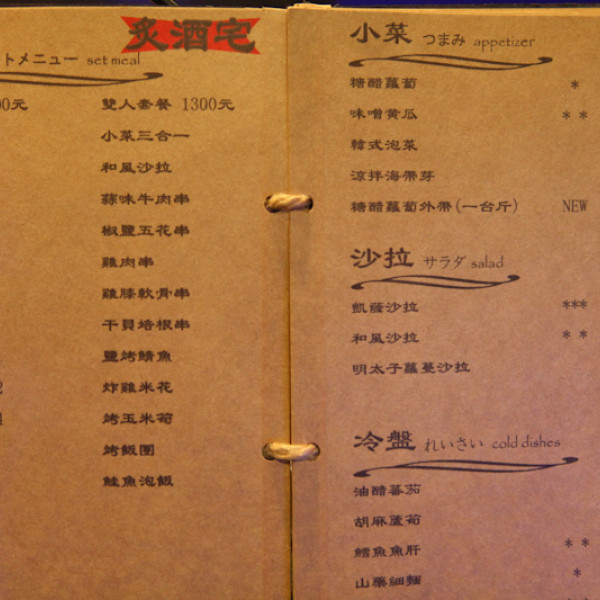 炙酒宅
トメニュー set meal
00元
雙人套餐 1300元
小菜三合一
和風沙拉
蒜味牛肉串
椒鹽五花串
雞肉串
雞膝軟骨串
干貝培根串
鹽烤鯖魚
炸雞米花
烤玉米筍
烤飯團
鮭魚泡飯
小菜 つまみ appetizer
糖醋蘿蔔 *
味噌黃瓜 * *
韓式泡菜
涼拌海帶芽
糖醋蘿蔔外帶(一台斤) NEW
沙拉 サラダ salad
凱薩沙拉 ***
和風沙拉 * *
明太子蘿蔓沙拉
冷盤 れいさい cold dishes
油醋蕃茄
胡麻蘆筍
鱈魚魚肝 * *
山藥細麵 *